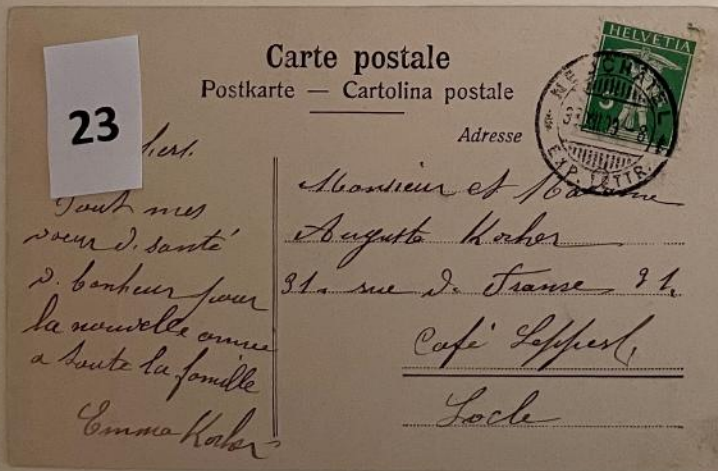 Carte postale
Postkarte — Cartolina postale
Adresse
HELVETIA
EXP. LETTR.
23
Tout mes
voeux d. santé
d. bonheur pour
la nouvelle année
a toute la famille
Emma Kocher
Monsieur et Madame
Auguste Kocher
31. rue d. France 31.
Café Leppert,
Locle